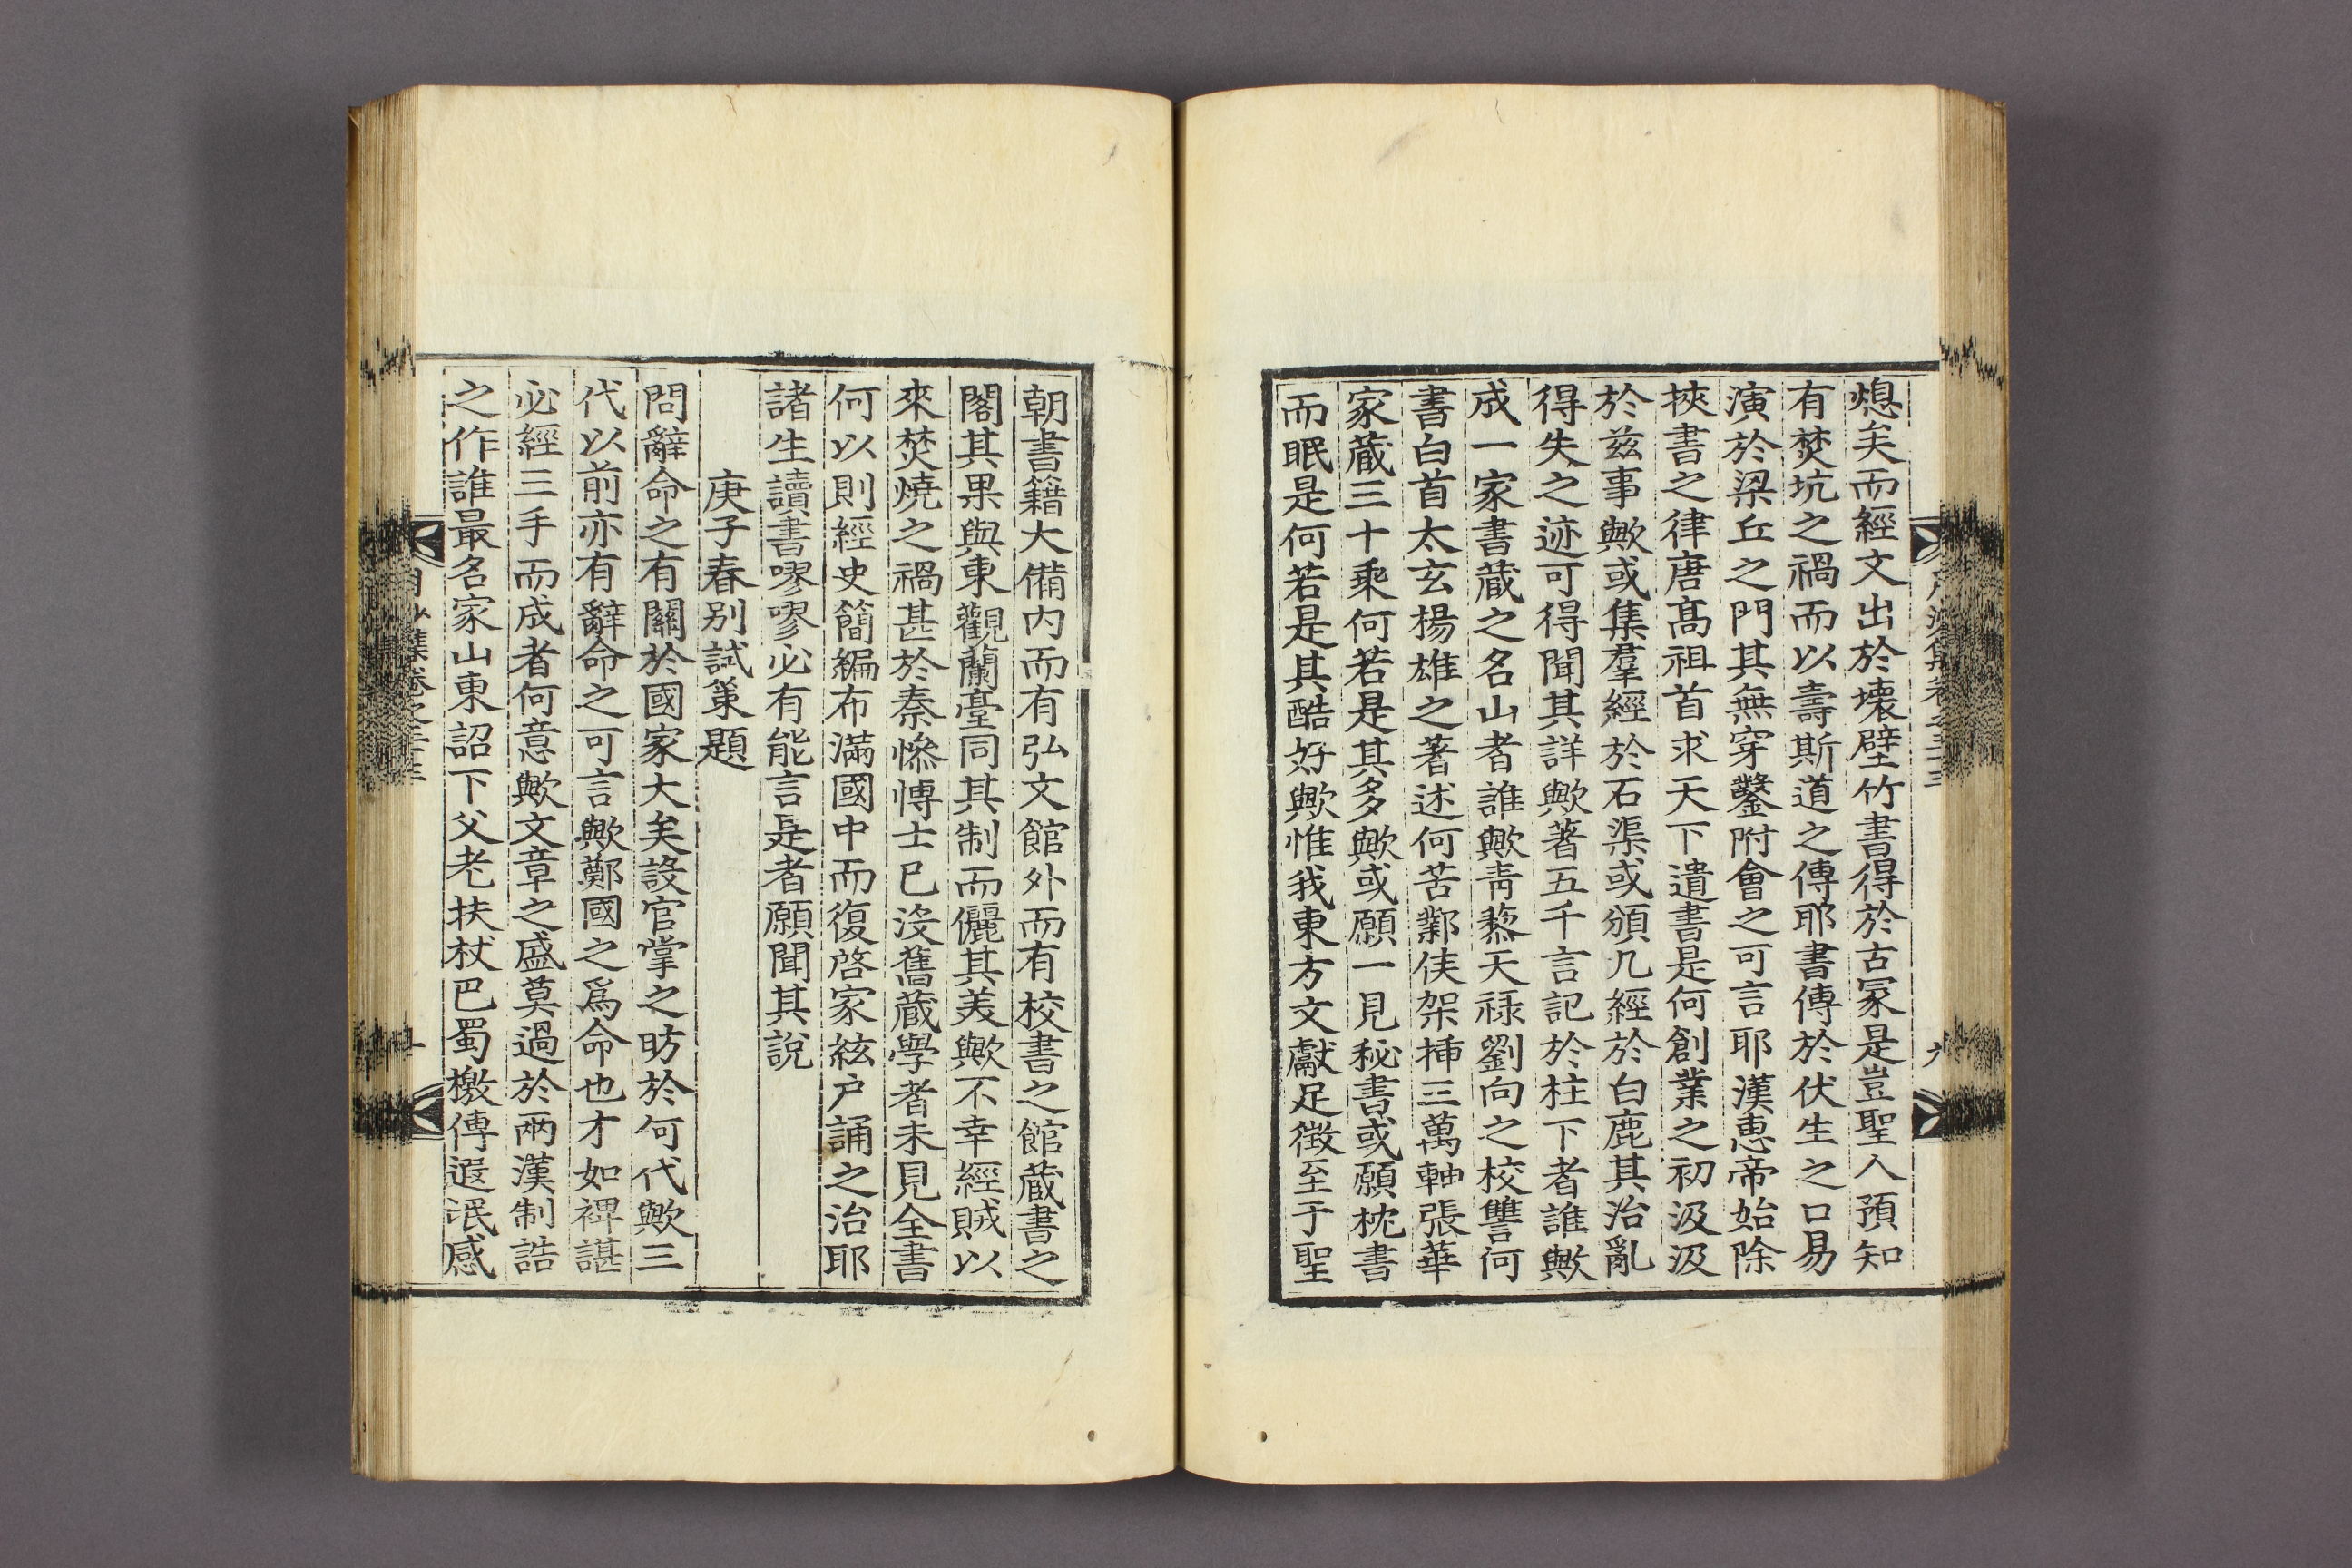 熄矣而經文出於壞壁竹書得於古冢是豈聖人預知
有焚坑之禍而以壽斯道之傳耶書傳於伏生之口易
演於梁丘之門其無穿鑿附會之可言耶漢惠帝始除
挾書之律唐高祖首求天下遺書是何創業之初汲汲
於玆事歟或集羣經於石渠或頒九經於白鹿其治亂
得失之迹可得聞其詳歟著五千言記於柱下者誰歟
成一家書藏之名山者誰歟靑藜天祿劉向之校讐何
書白首太玄楊雄之著述何苦鄴侯架揷三萬軸張華
家藏三十乘何若是其多歟或願一見秘書或願枕書
而眠是何若是其酷好歟惟我東方文獻足徵至于聖
朝書籍大備內而有弘文館外而有校書之館藏書之
閣其果與東觀蘭臺同其制而儷其美歟不幸經賊以
來焚燒之禍甚於秦慘博士已沒舊藏學者未見全書
何以則經史簡編布滿國中而復啓家絃戶誦之治耶
諸生讀書嘐嘐必有能言是者願聞其說
庚子春別試策題
問辭命之有關於國家大矣設官掌之昉於何代歟三
代以前亦有辭命之可言歟鄭國之爲命也才如裨諶
必經三手而成者何意歟文章之盛莫過於兩漢制誥
之作誰最名家山東詔下父老扶杖巴蜀檄傳遐氓感
集卷之二十三